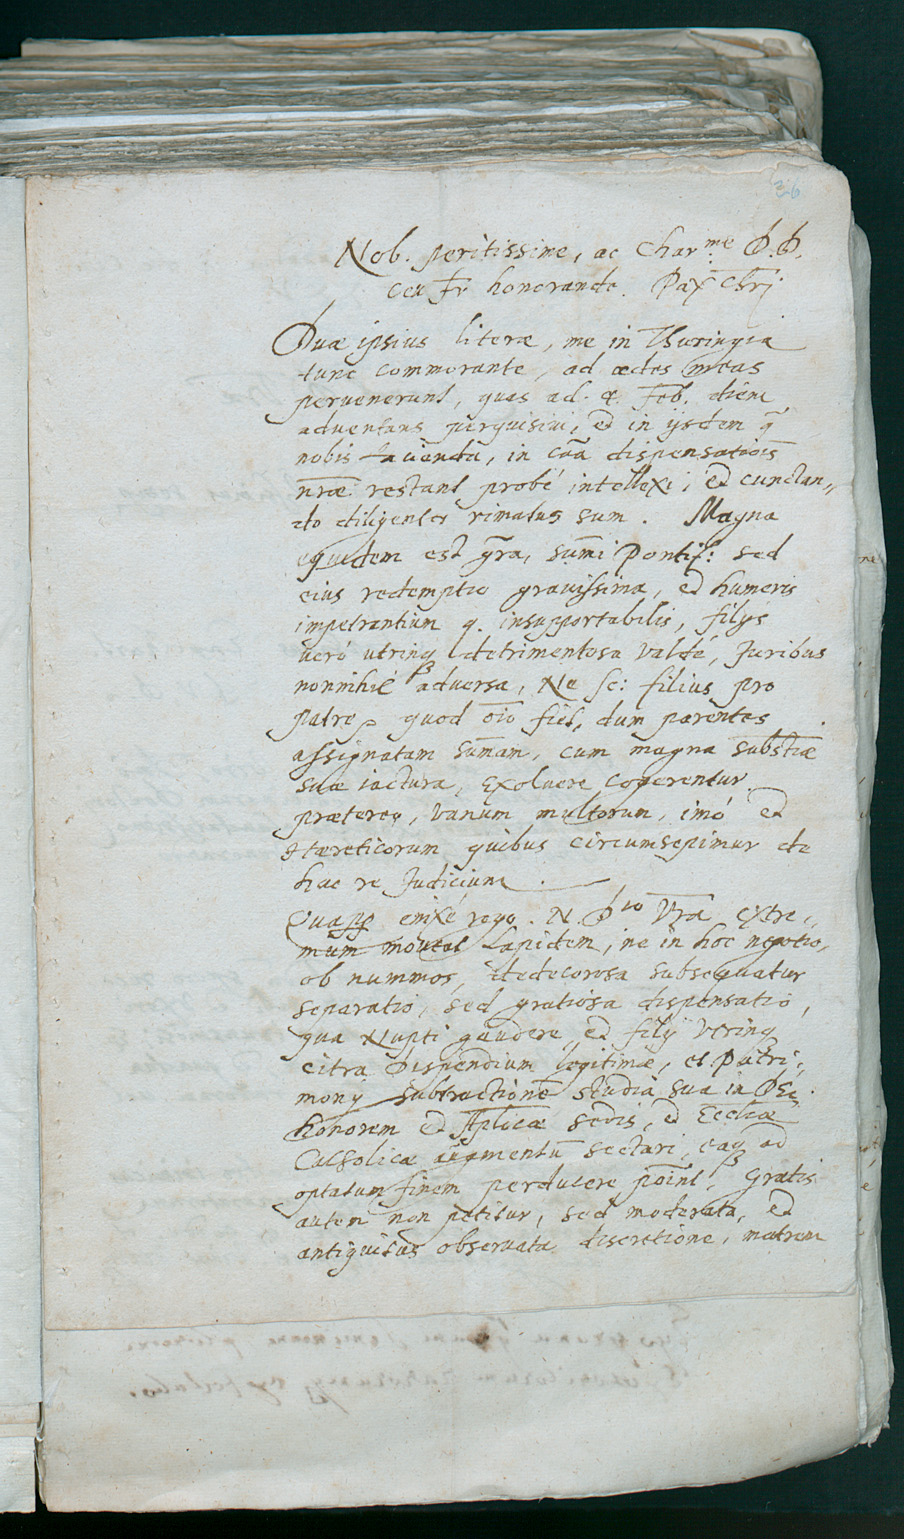 36
Nob. peritissime, ac Char.me D.D.
ceu fr honorande. Pax Chri
Duæ ipsius literæ, me in Thuringia
tunc commorante, ad ædes meas
pervenerunt, quas ad. 4. Feb. diem
adventans perquisivi, et in ijsdem q̃
nobis facienda, in cãa dispensatiõis
nr̃æ restant probé intellexi, et cunctan,,
do diligenter rimatus sum. Magna
equidem est gr̃a, sum̃i Pontif: sed
eius redemptio gravissima, et humeris
impetrantium q. insupportabilis, filijs
veró utrinq detrimentosa valdé, Juribus
nonnihil adversa, Ne sc: filius pro
patre, quod oĩo fiet, dum parentes
assignatam sum̃am, cum magna substãæ
suæ iactura, exolvere cogerentur.
præterea, vanum multorum, imó et
Hæreticorum quibus circumsepimur de
hac re Judicium.
Quapp enixé rogo. N. Dto Vr̃a extre,,
mum lapidem, ne in hoc negotio,
ob nummos, dedecorosa subsequatur
separatio, sed gratiosa dispensatio,
qua Nupti gaudere, et filij utrinq
citra dispendium legitimæ, et Patri,,
monij subtractionẽ studia sua in DEi
honorem et Aplicæ sedis, et Eccliæ
Catholicæ augmentũ sectari, eaq ad
optatum finem perducere poĩnt. Gratis
autem non petitur, sed moderata, et
antiquitus observata discretione, matrem